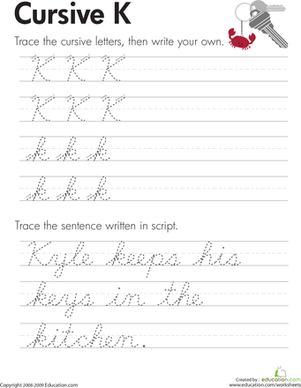 Cursive K
Trace the cursive letters, then write your own.
K K K
K K K
k k k
k k k
Trace the sentence written in script.
Kyle keeps his
keys in the
kitchen.
Copyright © 2008-2009 Education.com
Education.com
www.education.com/worksheets